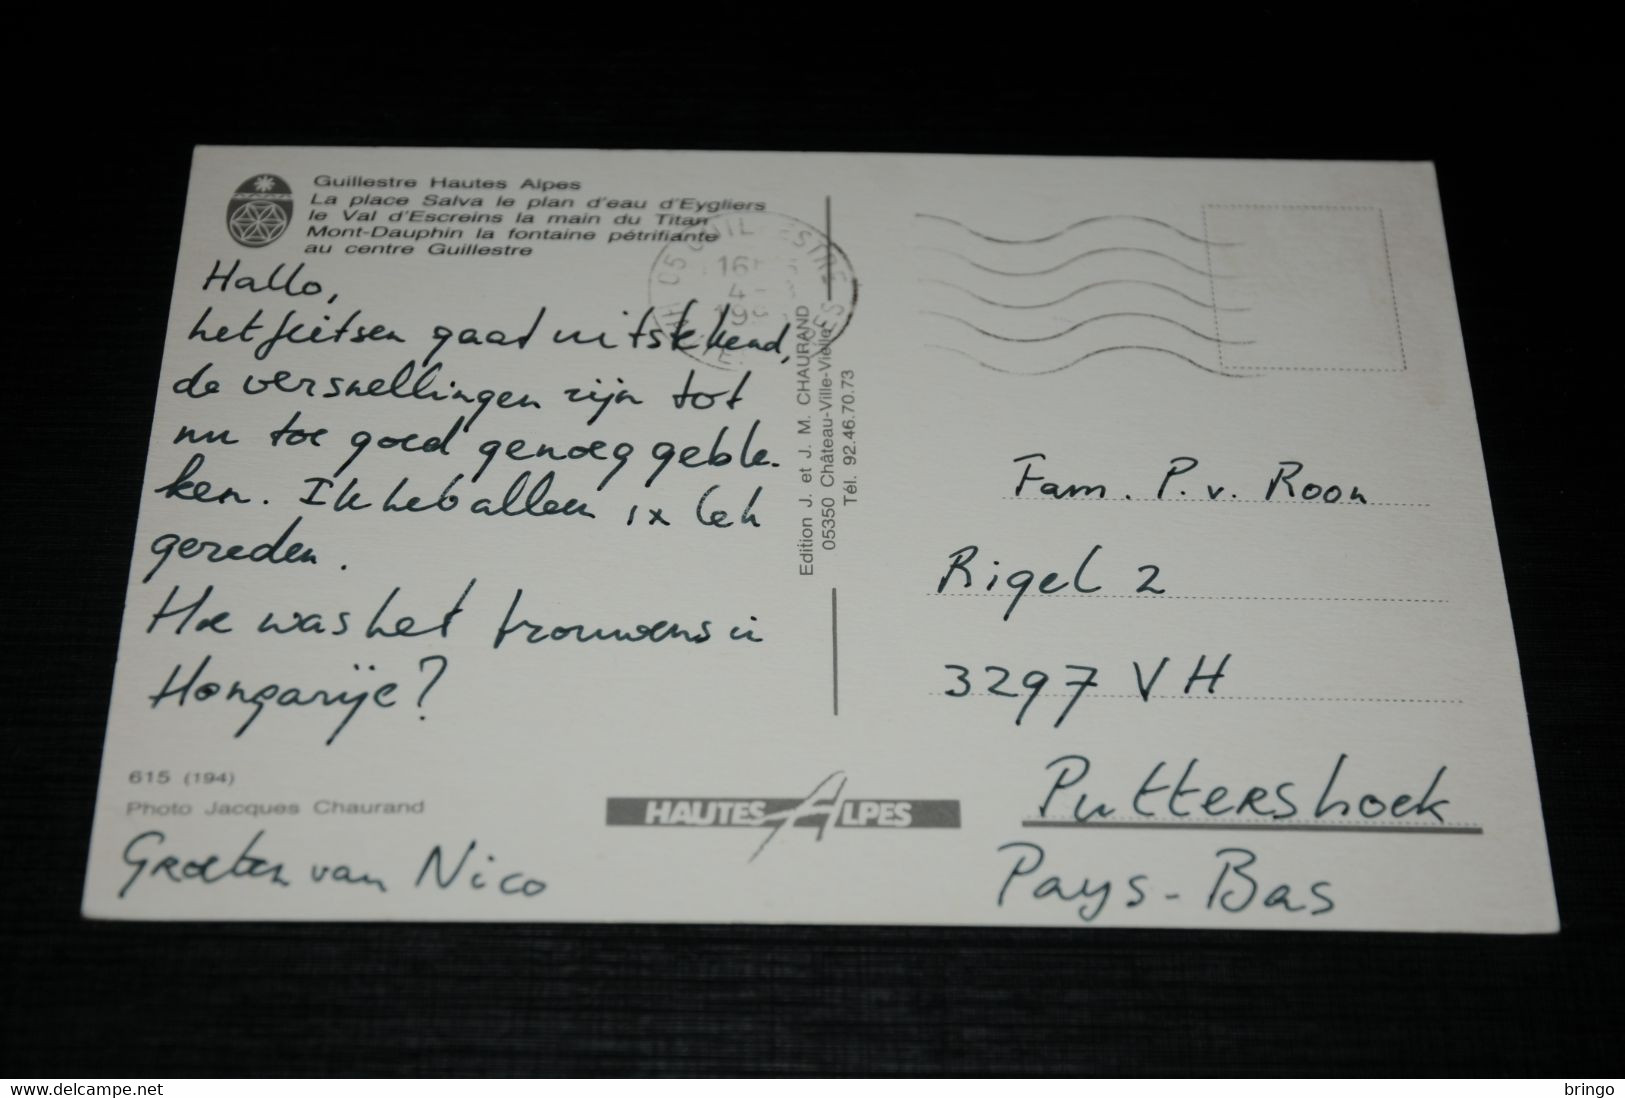 Guillestre Hautes Alpes
La place Salva le plan d'eau d'Eygliers
le Val d'Escreins la main du Titan
Mont-Dauphin la fontaine pétrifiante
au centre Guillestre
Hallo,
het fietsen gaat uitstekend,
de versnellingen zijn tot
nu toe goed genoeg geble-
ken. Ik heb alleen 1x lek
gereden.
Hoe was het trouwens in
Hongarije?
615 (194)
Photo Jacques Chaurand
Groeten van Nico
HAUTES ALPES
Edition J. et J. M. CHAURAND
05350 Château-Ville-Vieille
Tél. 92.46.70.73
16H
4-
19
Fam. P. v. Roon
Rigel 2
3297 VH
Puttershoek
Pays-Bas
www.delcampe.net
bringo